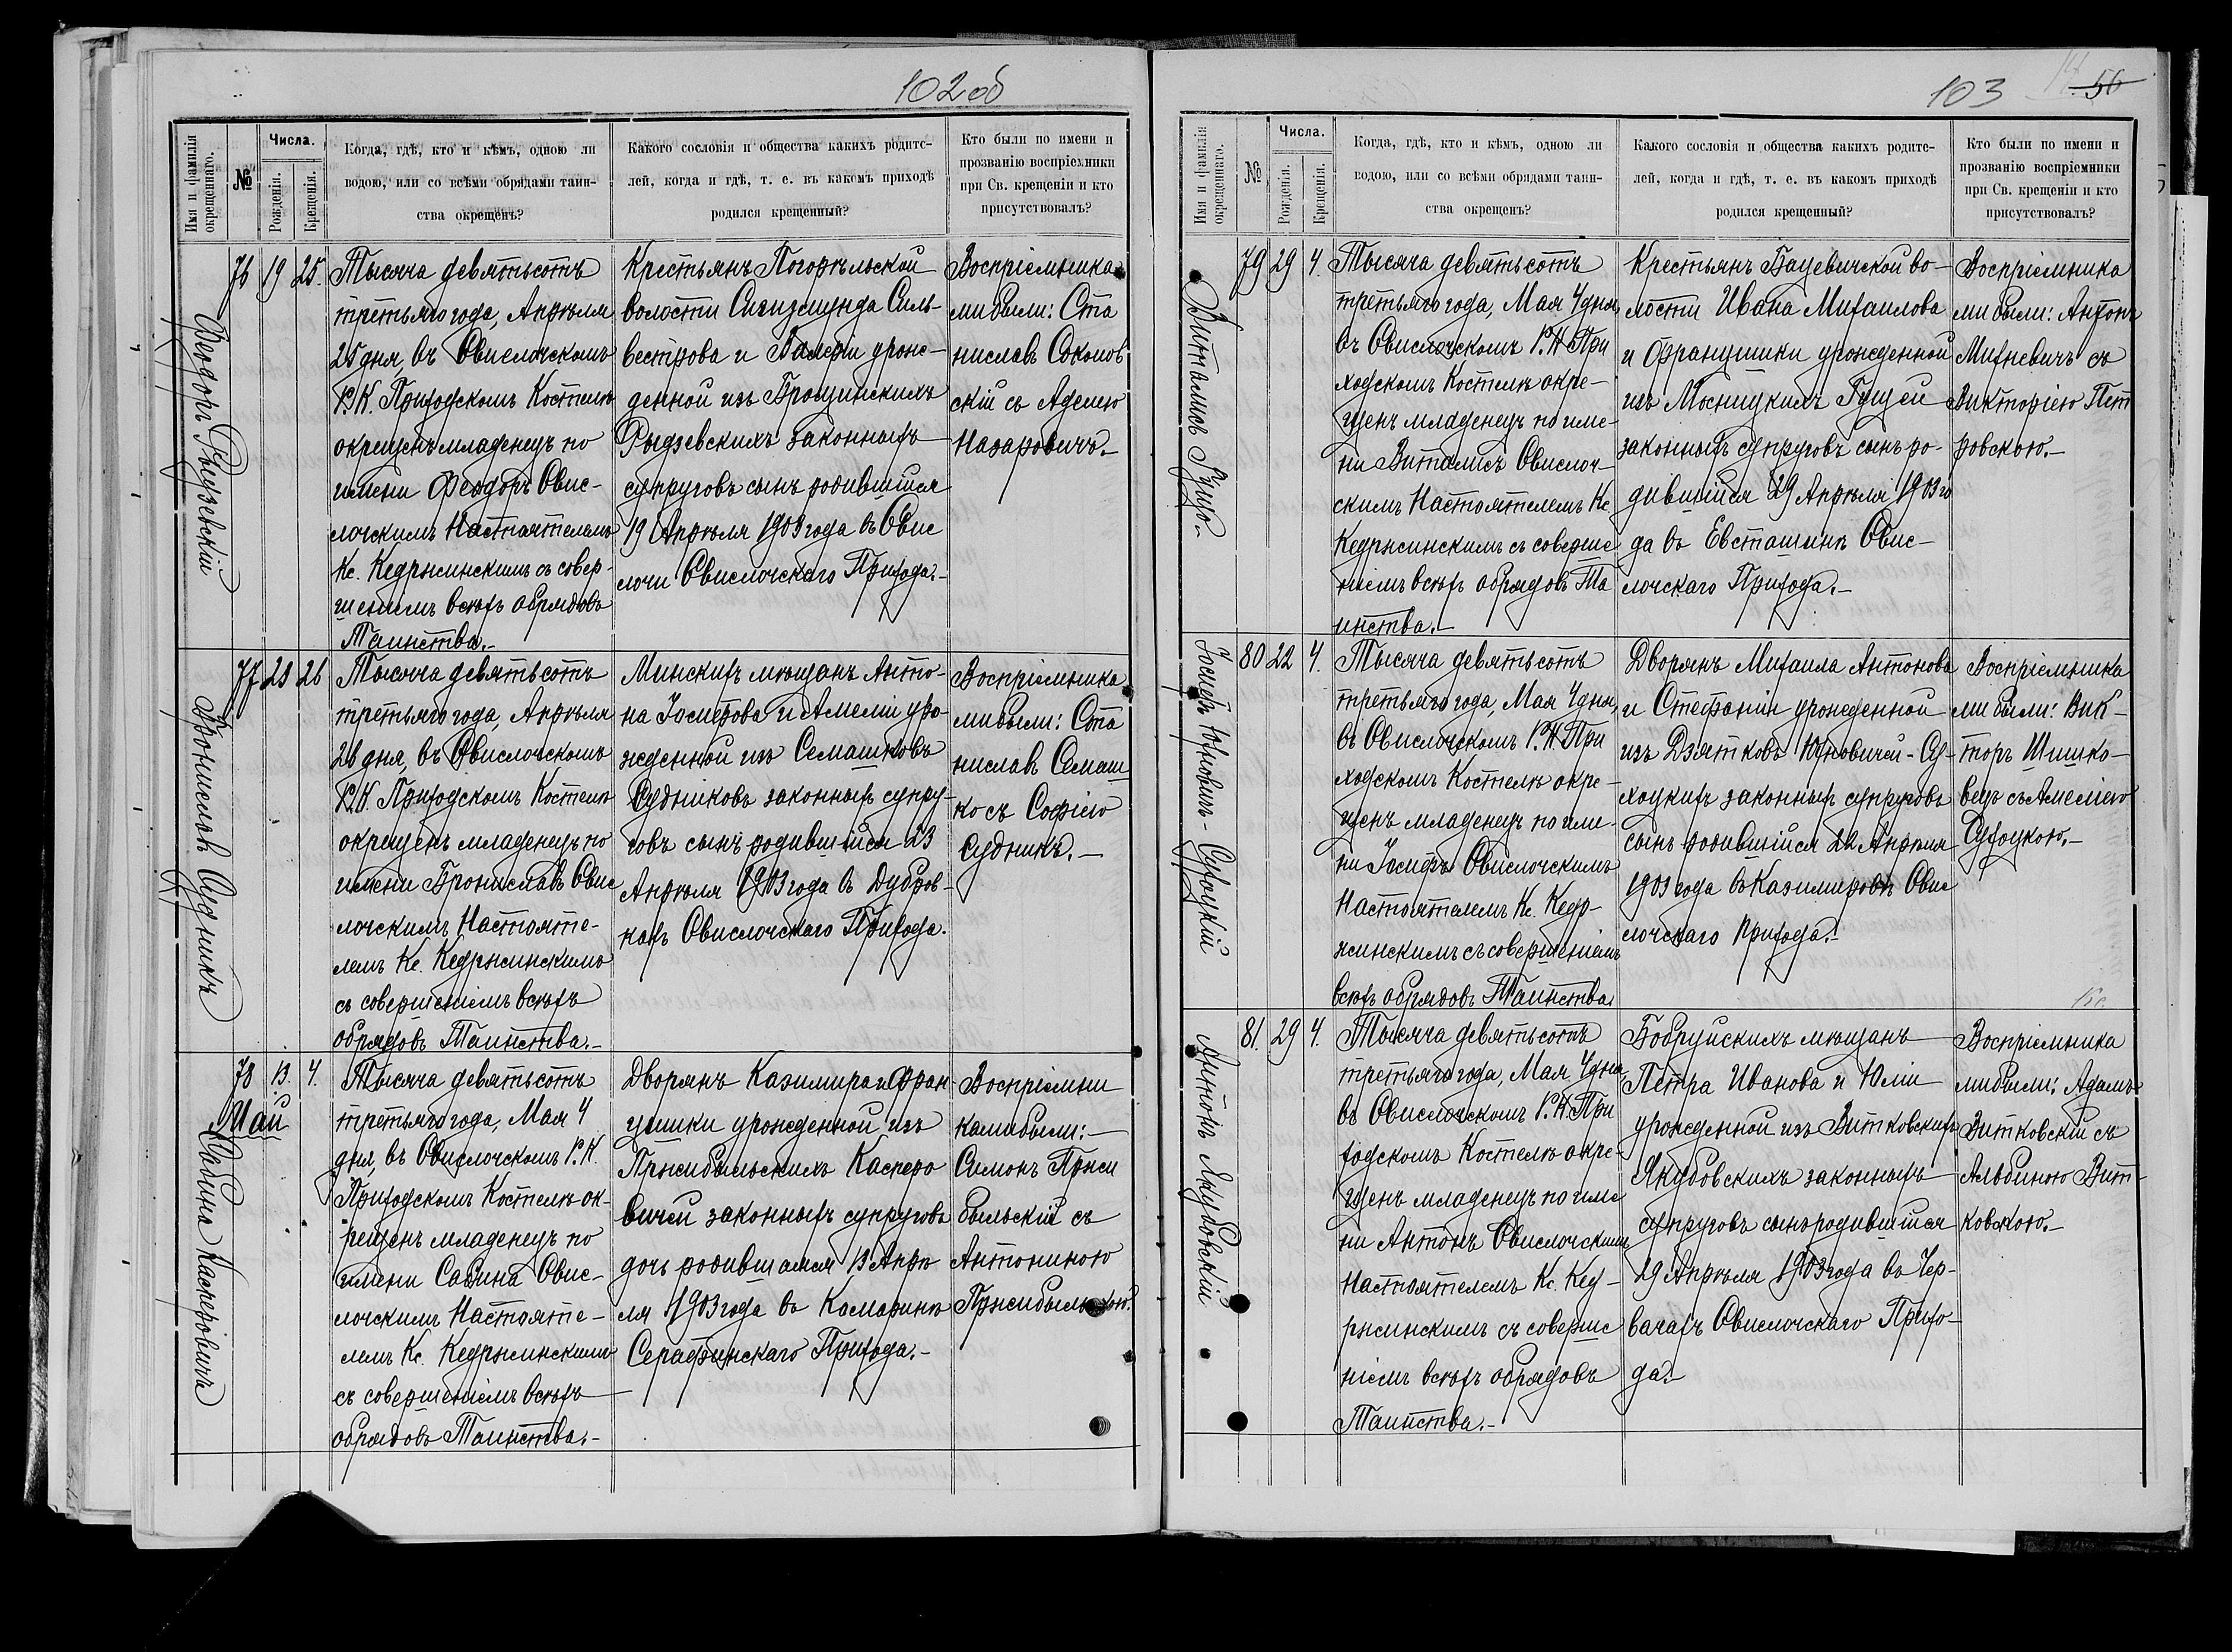 102 об
Имя и фамилія
окрещеннаго.
№
Числа.
Рожденія.
Крещенія.
Когда, гдѣ, кто и кѣмъ, одною ли
водою, или со всѣми обрядами таин-
ства окрещенъ?
Какого сословія и общества какихъ родите-
лей, когда и гдѣ, т. е. въ какомъ приходѣ
родился крещенный?
Кто были по имени и
прозванію воспріемники
при Св. крещеніи и кто
присутствовалъ?
Феодоръ Рыдзевскій
76
19
25.
Тысяча девятьсотъ
третьяго года, Апрѣля
25 дня, въ Свислочскомъ
Р. К. Приходскомъ Костелѣ
окрещенъ младенецъ по
имени Феодоръ Свис-
лочскимъ Настоятелемъ
Кс. Кедржинскимъ съ совер-
шеніемъ всѣхъ обрядовъ
Таинства.-
Крестьянъ Погорѣльской
волости Сигизмунда Силь-
вестрова и Валеріи урож-
денной изъ
Рыдзевскихъ законныхъ
супруговъ сынъ родившійся
19 Апрѣля 1903 года въ Свис
лочи Свислочскаго Прихода.-
Воспріемника
ми были: Ста
ниславъ Соколов
скій съ Аделею
Назаровичъ.-
Брониславъ Судникъ
77
23
26
Тысяча девятьсотъ
третьяго года, Апрѣля
26 дня, въ Свислочскомъ
Р. К. Приходскомъ Костелѣ
окрещенъ младенецъ по
имени Брониславъ Свис
лочскимъ Настояте-
лемъ Кс. Кедржинскимъ
съ совершеніемъ всѣхъ
обрядовъ Таинства.-
Минскихъ мѣщанъ Анто-
на Іосифова и Амеліи уро-
жденной изъ Семашковъ
Судниковъ законныхъ супру-
говъ сынъ родившійся 23
Апрѣля 1903 года въ Дубров-
кахъ Свислочскаго Прихода.
Воспріемника
ми были: Ста
ниславъ Семаш
ко съ Софіею
Судникъ.-
Сабина Касперовичъ
78
13.
4.
Май
Тысяча девятьсотъ
третьяго года, Мая 4
дня, въ Свислочскомъ Р. К.
Приходскомъ Костелѣ ок-
рещенъ младенецъ по
имени Сабина Свис-
лочскимъ Настояте-
лемъ Кс. Кедржинскимъ
съ совершеніемъ всѣхъ
обрядовъ Таинства.-
Дворянъ Казимира и Фран-
цишки урожденной изъ
Пржибыльскихъ Касперо
вичей законныхъ супруговъ
дочь родившаяся 13 Апрѣ
ля 1903 года въ Комаринѣ
Серафинскаго Прихода.-
Воспріемни
ками были:-
Симонъ Пржи
быльскій съ
Антониною
103
56
Имя и фамилія
окрещеннаго.
№
Числа.
Рожденія.
Крещенія.
Когда, гдѣ, кто и кѣмъ, одною ли
водою, или со всѣми обрядами таин-
ства окрещенъ?
Какого сословія и общества какихъ родите-
лей, когда и гдѣ, т. е. въ какомъ приходѣ
родился крещенный?
Кто были по имени и
прозванію воспріемники
при Св. крещеніи и кто
присутствовалъ?
Виталисъ Гуцо-
79
29
4.
Тысяча девятьсотъ
третьяго года, Мая 4 дня,
въ Свислочскомъ Р. К. При
ходскомъ Костелѣ окре-
щенъ младенецъ по име-
ни Виталисъ Свислоч-
скимъ Настоятелемъ Кс.
Кедржинскимъ съ соверше
ніемъ всѣхъ обрядовъ Та
инства.-
Крестьянъ Бацевичской во-
лости Ивана Михаилова
и Францишки урожденной
изъ Мосницкихъ Гуцей
законныхъ супруговъ сынъ ро-
дившійся 29 Апрѣля 1903 го
да въ Евсташинѣ Свис-
лочскаго Прихода.-
Воспріемника
ми были: Антонъ
Михневичъ съ
Викторіею Пет
ровскою.-
Іосифъ Юхновичъ-Сухоцкій
80
22
4.
Тысяча девятьсотъ
третьяго года, Мая 4 дня,
въ Свислочскомъ Р. К. При
ходскомъ Костелѣ окре-
щенъ младенецъ по име-
ни Іосифъ Свислочскимъ
Настоятелемъ Кс. Кедр-
жинскимъ съ совершеніемъ
всѣхъ обрядовъ Таинства
Дворянъ Михаила Антонова
и Стефаніи урожденной
изъ Дзятковъ Юхновичей-Су-
хоцкихъ законныхъ супруговъ
сынъ родившійся 22 Апрѣля
1903 года въ Казимировѣ Свис
лочскаго Прихода.-
Воспріемника
ми были: Вик-
торъ Шишко-
вецъ съ Амеліею
Сухоцкою.-
Антонъ Якубовскій
81.
29
4.
Тысяча девятьсотъ
третьяго года, Мая 4 дня,
въ Свислочскомъ Р. К. При
ходскомъ Костелѣ окре-
щенъ младенецъ по име
ни Антонъ Свислочскимъ
Настоятелемъ Кс. Кед-
ржинскимъ съ соверше
ніемъ всѣхъ обрядовъ
Таинства.-
Бобруйскихъ мѣщанъ
Петра Иванова и Юліи
урожденной изъ Витковскихъ
Якубовскихъ законныхъ
супруговъ сынъ родившійся
29 Апрѣля 1903 года въ Чер-
вачахъ Свислочскаго Прихо-
да.-
Воспріемника
ми были: Адамъ
Витковскій съ
Альбиною Вит-
ковскою.-